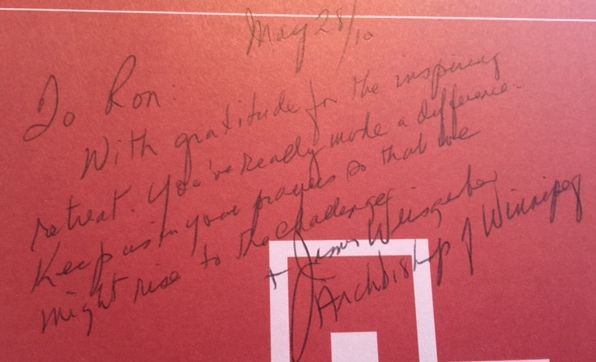 May 28/10
To Ron.
With gratitude for the inspiring
retreat. You've really made a difference.
Keep us in your prayers so that we
might rise to the challenge
+ James Weisgerber
Archbishop of Winnipeg